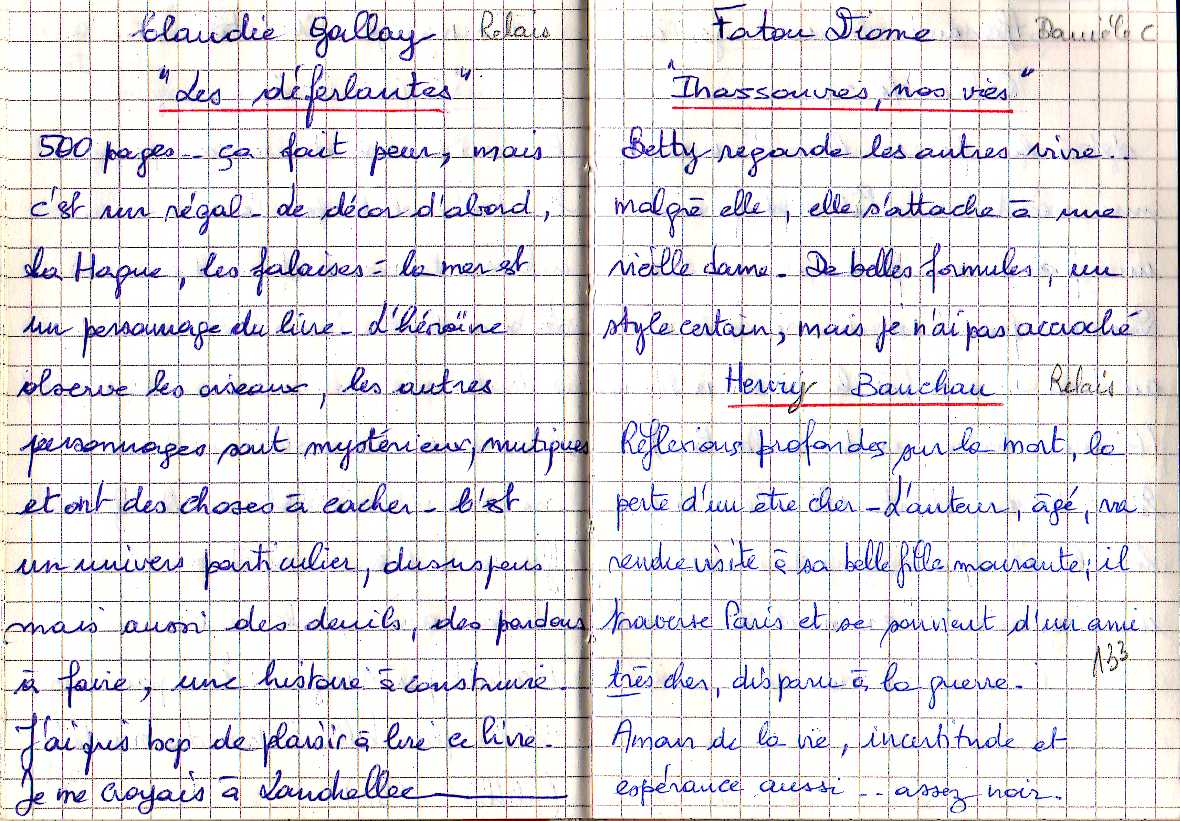 Claudie Gallay Relais
"Les déferlantes"
500 pages - ça fait peur, mais
c'est un régal - le décor d'abord,
La Hague, les falaises = la mer est
un personnage du livre - L'héroïne
observe les oiseaux, les autres
personnages sont mystérieux, mutiques
et ont des choses à cacher - C'est
un univers particulier, du suspens
mais aussi des deuils, des pardons
à faire, une histoire à construire.
J'ai pris bcp de plaisir à lire ce livre.
Je me croyais à
Fatou Diome Danièle C
"Inassouvies, nos vies"
Betty regarde les autres vivre..
malgré elle, elle s'attache à une
vieille dame - De belles formules, un
style certain, mais je n'ai pas accroché
Henry Bauchau Relais
Réflexions profondes sur la mort, la
perte d'un être cher - L'auteur, âgé, va
rendre visite à sa belle fille mourante, il
traverse Paris et se souvient d'un ami
133
très cher, disparu à la guerre.
Amour de la vie, incertitude et
espérance aussi .. assez noir.